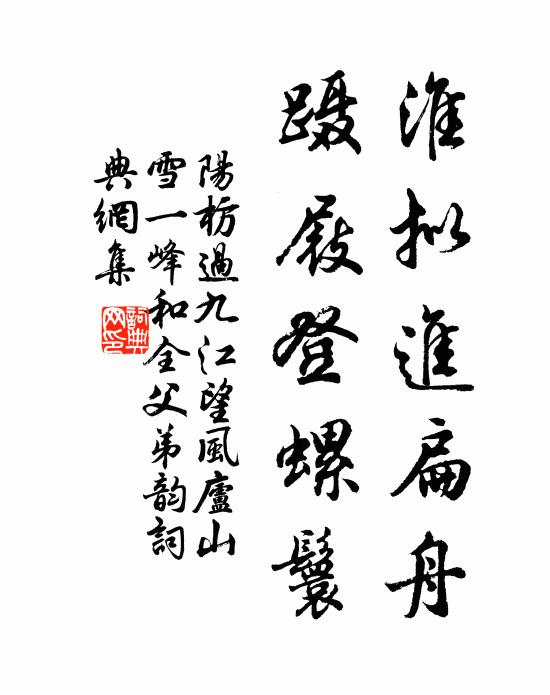 准拟進扁舟
蹑屐登螺鬟
陽枋過九江望風廬山
雪一峰和全父弟韵詞
典網集
詞典
网印